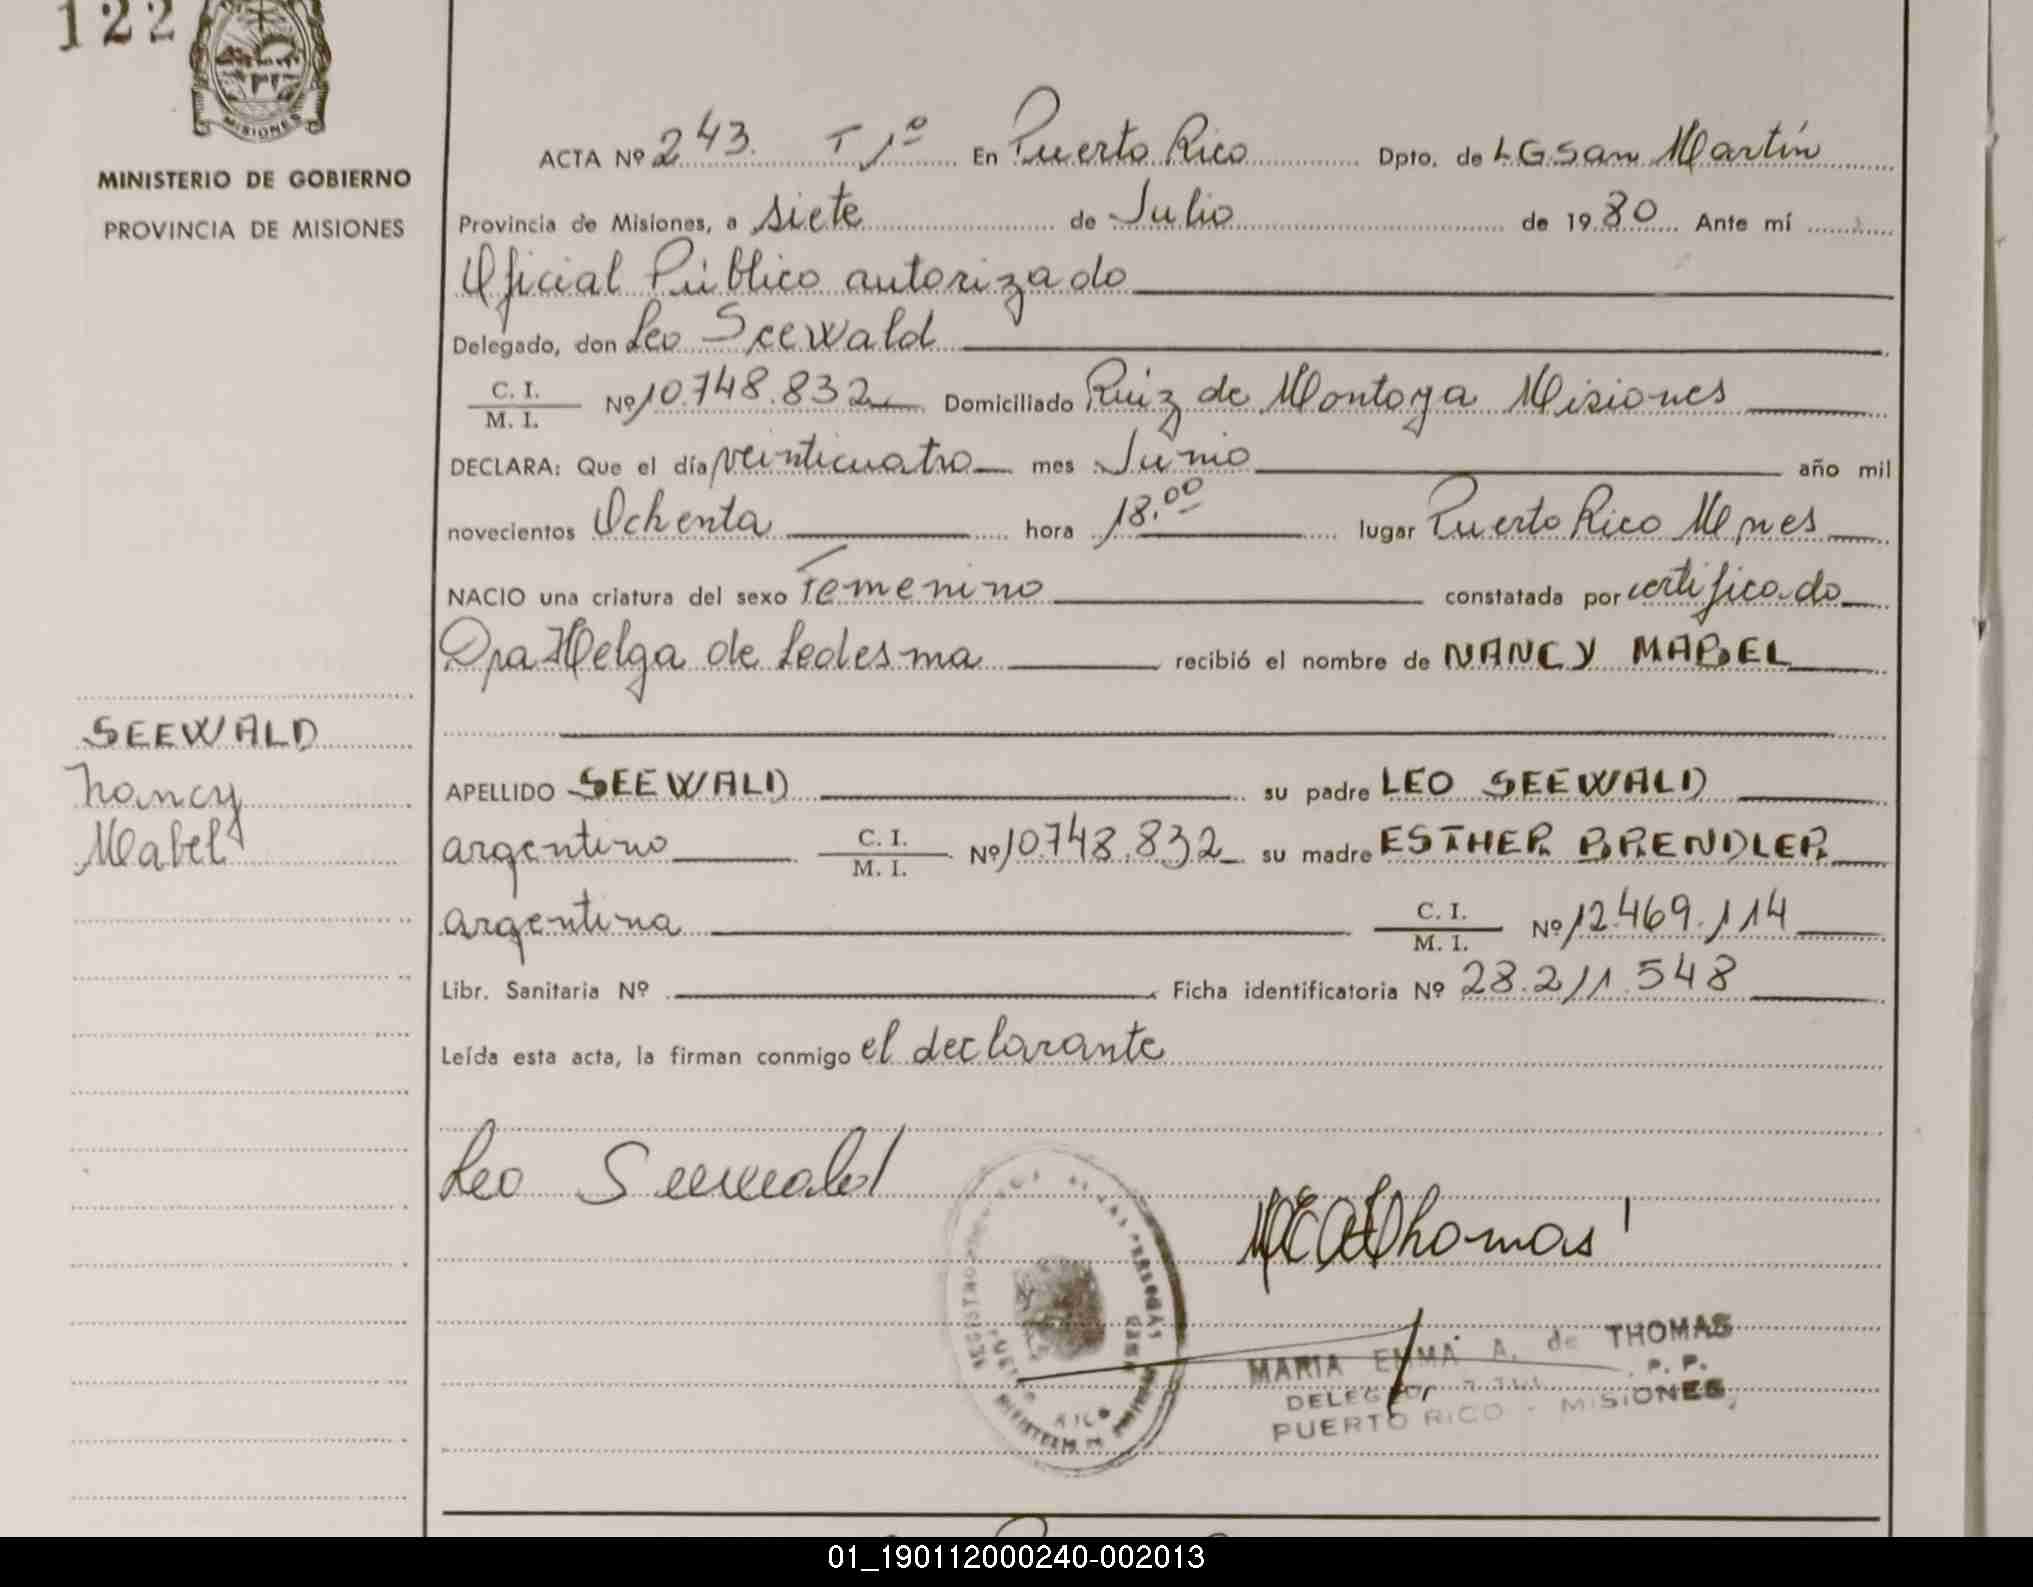 122
MISIONES
MINISTERIO DE GOBIERNO
PROVINCIA DE MISIONES
ACTA Nº 243. T 1º En Puerto Rico Dpto. de L G San Martín
Provincia de Misiones, a siete de Julio de 1980 Ante mí
Oficial Público autorizado
Delegado, don Leo Seewald
C. I. / M. I. Nº 10.748.832 Domiciliado Ruiz de Montoya Misiones
DECLARA: Que el día veinticuatro mes Junio año mil
novecientos Ochenta hora 18.00 lugar Puerto Rico Mnes
NACIO una criatura del sexo Femenino constatada por certificado
Dra Helga de Ledesma recibió el nombre de NANCY MABEL
SEEWALD
Nancy
Mabel
APELLIDO SEEWALD su padre LEO SEEWALD
argentino C. I. / M. I. Nº 10.748.832 su madre ESTHER BRENDLER
argentina C. I. / M. I. Nº 12.469.114
Libr. Sanitaria Nº Ficha identificatoria Nº 28.211.548
Leída esta acta, la firman conmigo el declarante
Leo Seewald
Thomas
MARIA EMMA A. de THOMAS
PUERTO RICO - MISIONES
01_190112000240-002013